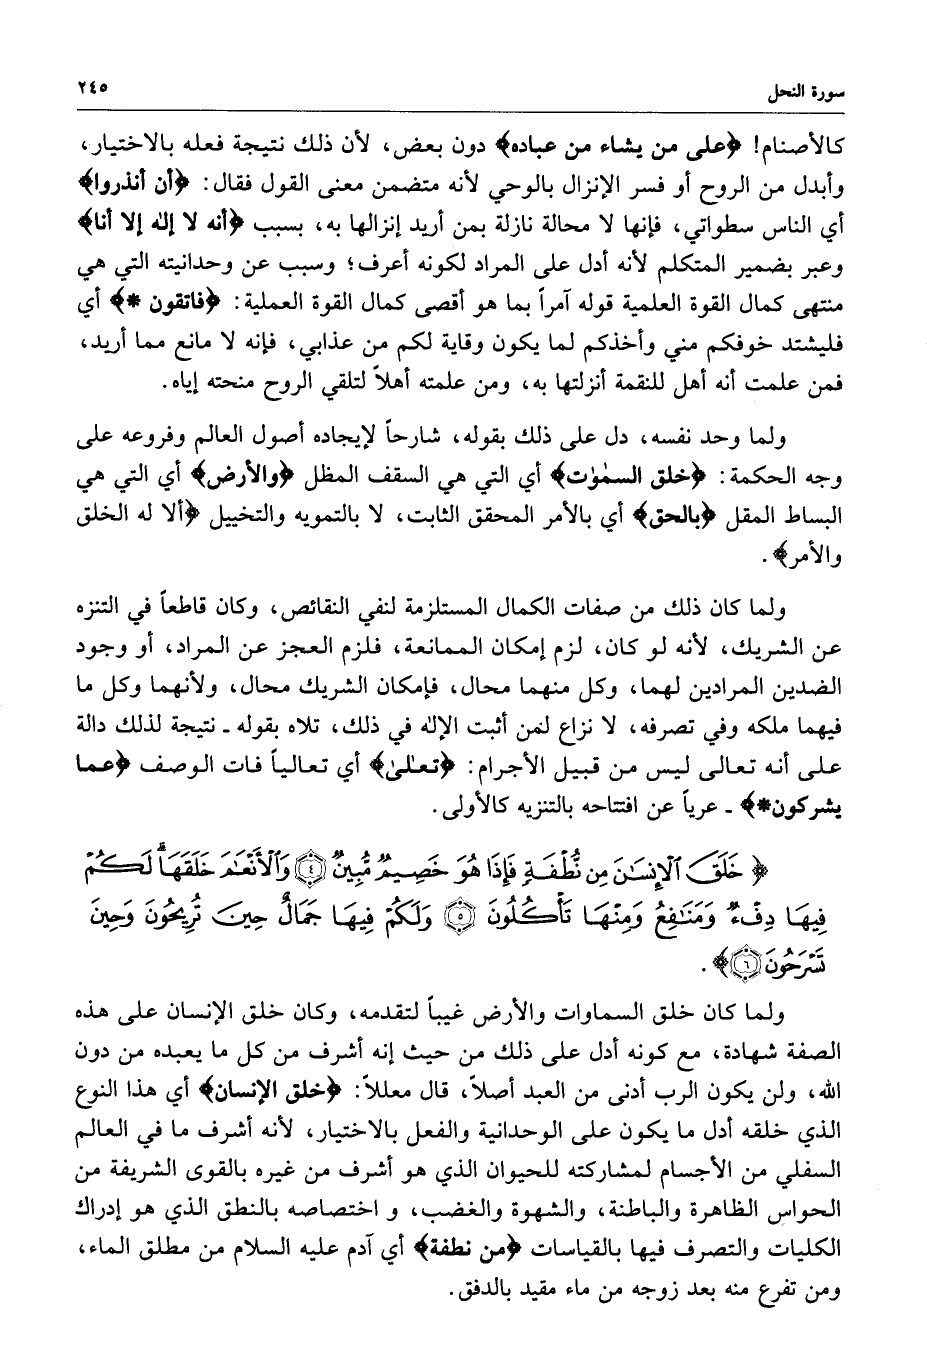 سورة النحل ٢٤٥
كالأصنام! ﴿على من يشاء من عباده﴾ دون بعض، لأن ذلك نتيجة فعله بالاختيار،
وأبدل من الروح أو فسر الإنزال بالوحي لأنه متضمن معنى القول فقال: ﴿أن أنذروا﴾
أي الناس سطواتي، فإنها لا محالة نازلة بمن أريد إنزالها به، بسبب ﴿أنه لا إلٰه إلا أنا﴾
وعبر بضمير المتكلم لأنه أدل على المراد لكونه أعرف؛ وسبب عن وحدانيته التي هي
منتهى كمال القوة العلمية قوله آمراً بما هو أقصى كمال القوة العملية: ﴿فاتقون *﴾ أي
فليشتد خوفكم مني وأخذكم لما يكون وقاية لكم من عذابي، فإنه لا مانع مما أريد،
فمن علمت أنه أهل للنقمة أنزلتها به، ومن علمته أهلاً لتلقي الروح منحته إياه.
ولما وحد نفسه، دل على ذلك بقوله، شارحاً لإيجاده أصول العالم وفروعه على
وجه الحكمة: ﴿خلق السمٰوٰت﴾ أي التي هي السقف المظل ﴿والأرض﴾ أي التي هي
البساط المقل ﴿بالحق﴾ أي بالأمر المحقق الثابت، لا بالتمويه والتخييل ﴿ألا له الخلق
والأمر﴾.
ولما كان ذلك من صفات الكمال المستلزمة لنفي النقائص، وكان قاطعاً في التنزه
عن الشريك، لأنه لو كان، لزم إمكان الممانعة، فلزم العجز عن المراد، أو وجود
الضدين المرادين لهما، وكل منهما محال، فإمكان الشريك محال، ولأنهما وكل ما
فيهما ملكه وفي تصرفه، لا نزاع لمن أثبت الإلٰه في ذلك، تلاه بقوله ـ نتيجة لذلك دالة
على أنه تعالى ليس من قبيل الأجرام: ﴿تعلٰىٰ﴾ أي تعالياً فات الوصف ﴿عما
يشركون*﴾ ـ عرياً عن افتتاحه بالتنزيه كالأولى.
﴿خَلَقَ ٱلْإِنسَـٰنَ مِن نُّطْفَةٍ فَإِذَا هُوَ خَصِيمٌ مُّبِينٌ ٤ وَٱلْأَنْعَـٰمَ خَلَقَهَا ۗ لَكُمْ
فِيهَا دِفْءٌ وَمَنَـٰفِعُ وَمِنْهَا تَأْكُلُونَ ٥ وَلَكُمْ فِيهَا جَمَالٌ حِينَ تُرِيحُونَ وَحِينَ
تَسْرَحُونَ ٦﴾.
ولما كان خلق السماوات والأرض غيباً لتقدمه، وكان خلق الإنسان على هذه
الصفة شهادة، مع كونه أدل على ذلك من حيث إنه أشرف من كل ما يعبده من دون
الله، ولن يكون الرب أدنى من العبد أصلاً، قال معللاً: ﴿خلق الإنسان﴾ أي هذا النوع
الذي خلقه أدل ما يكون على الوحدانية والفعل بالاختيار، لأنه أشرف ما في العالم
السفلي من الأجسام لمشاركته للحيوان الذي هو أشرف من غيره بالقوى الشريفة من
الحواس الظاهرة والباطنة، والشهوة والغضب، و اختصاصه بالنطق الذي هو إدراك
الكليات والتصرف فيها بالقياسات ﴿من نطفة﴾ أي آدم عليه السلام من مطلق الماء،
ومن تفرع منه بعد زوجه من ماء مقيد بالدفق.